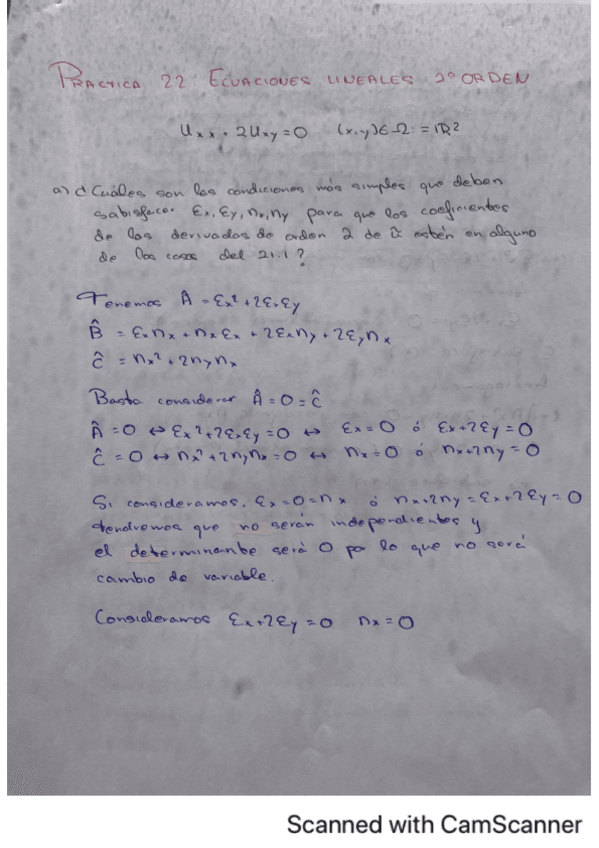 PRACTICA 22 ECUACIONES LINEALES 2º ORDEN
Uxx + 2Uxy = 0 (x,y) ∈ Ω = ℝ²
a) ¿Cuáles son las condiciones más simples que deben
satisfacer Ɛx, Ɛy, nx, ny para que los coeficientes
de las derivadas de orden 2 de ũ estén en alguno
de los casos del 21.1?
Tenemos Â = Ɛx² + 2ƐxƐy
B̂ = Ɛxnx + nxƐx + 2Ɛxny + 2Ɛynx
Ĉ = nx² + 2nynx
Basta considerar Â = 0 = Ĉ
Â = 0 ↔ Ɛx² + 2ƐxƐy = 0 ↔ Ɛx = 0 ó Ɛx + 2Ɛy = 0
Ĉ = 0 ↔ nx² + 2nynx = 0 ↔ nx = 0 ó nx + 2ny = 0
Si consideramos, Ɛx = 0 = nx ó nx + 2ny = Ɛx + 2Ɛy = 0
tendremos que no serán independientes y
el determinante será 0 por lo que no será
cambio de variable.
Consideramos Ɛx + 2Ɛy = 0 nx = 0
Scanned with CamScanner